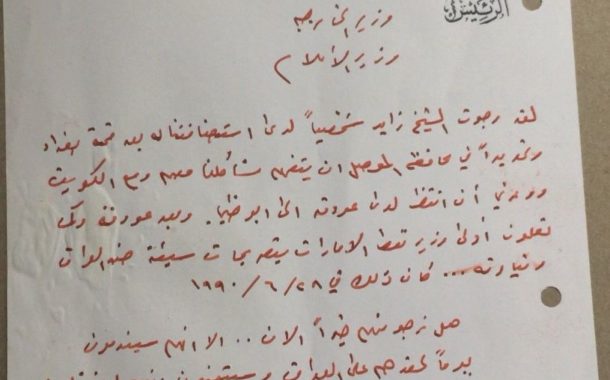 الرئيس
وزير الخارجية
وزير الاعلام
لقد رجوت الشيخ زايد شخصياً لدى استضافتنا له بعد قمة بغداد
وتحديداً في محافظة الموصل ان يتفهم مشاكلنا معهم ومع الكويت
ووعدني أن انتظر لدى عودته الى ابوظبي. وبعد عودته وكما
تعلمون أدلى وزير نفط الامارات بتصريحات سيئة ضد العراق
وقيادته... كان ذلك في ٢٨/٦/١٩٩٠
هل نرجو منهم خيراً الان .. الا انهم سيندمون
يوماً لحقدهم على العراق